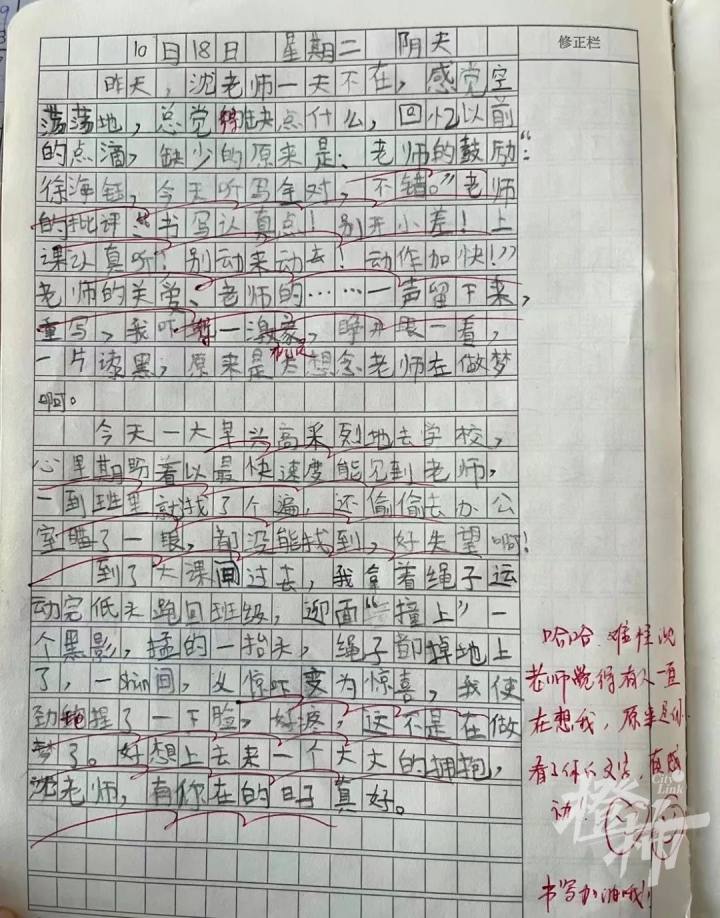 修正栏
10月18日 星期二 阴天
昨天，沈老师一天不在，感觉空
荡荡地，总觉得缺点什么，回忆以前
的点滴，缺少的原来是：老师的鼓励：“
徐海钰，今天听写全对，不错。”老师
的批评：“书写认真点！别开小差！上
课认真听！别动来动去！动作加快！”
老师的关爱、老师的……一声留下来，
重写，我吓得一激灵，睁开眼一看，
一片漆黑，原来是太想念老师在做梦
啊。
今天一大早兴高采烈地去学校，
心里期盼着以最快速度能见到老师，
一到班里就找了个遍，还偷偷去办公
室瞄了一眼，都没能找到，好失望啊！
到了大课间过去，我拿着绳子运
动完低头跑回班级，迎面“撞上”一
个黑影，猛的一抬头，绳子都掉地上
了，一shùn间，又惊吓变为惊喜，我使
劲捏了一下脸，好疼，这不是在做
梦了。好想上去来一个大大的拥抱，
沈老师，有你在的日子真好。
哈哈，难怪此
老师觉得有人一直
在想我，原来是你
看了你的文字，真感
动！
书写加油哦！
橙柿
City Link